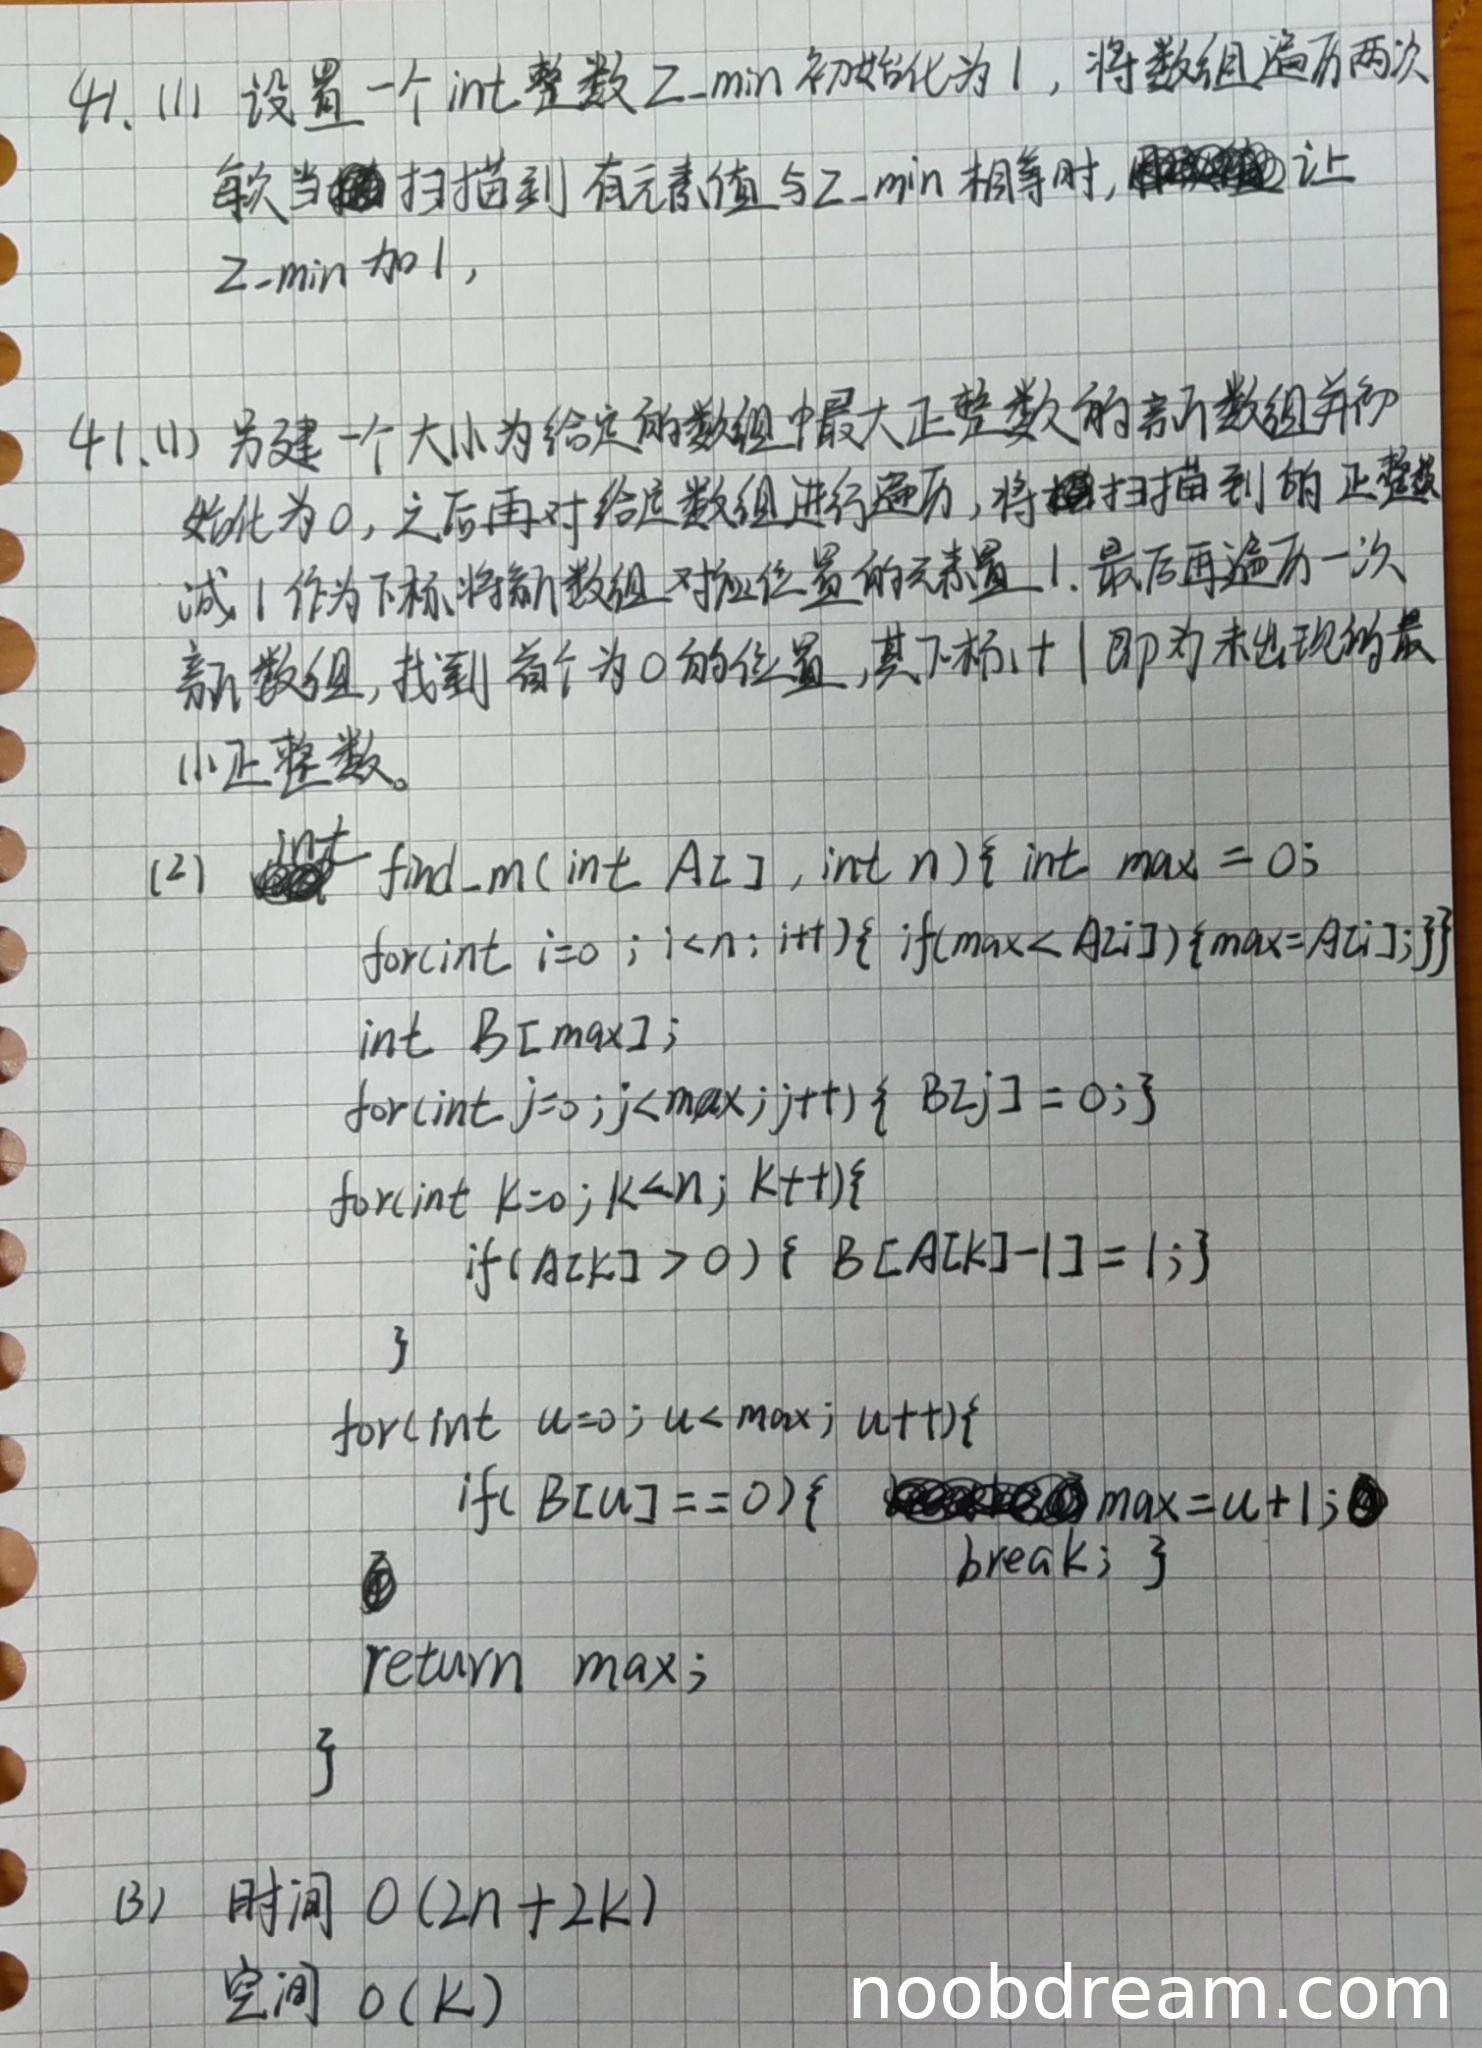 41. (1) 设置一个int整数Z_min初始化为1，将数组遍历两次
每次当扫描到有元素值与Z_min相等时，让
Z_min加1，
41. (1) 另建一个大小为给定的数组中最大正整数的新数组并初
始化为0，之后再对给定数组进行遍历，将扫描到的正整数
减1作为下标将新数组对应位置的元素置1.最后再遍历一次
新数组，找到首个为0的位置，其下标+1即为未出现的最
小正整数。
(2) int find_m(int A[], int n){ int max = 0;
for(int i=0; i<n; i++){ if(max<A[i]){max=A[i];}}
int B[max];
for(int j=0; j<max; j++){ B[j]=0;}
for(int k=0; k<n; k++){
if(A[k]>0){ B[A[k]-1]=1;}
}
for(int u=0; u<max; u++){
if(B[u]==0){ max=u+1;
break; }
return max;
}
(3) 时间 O(2n+2k)
空间 O(k)
noobdream.com